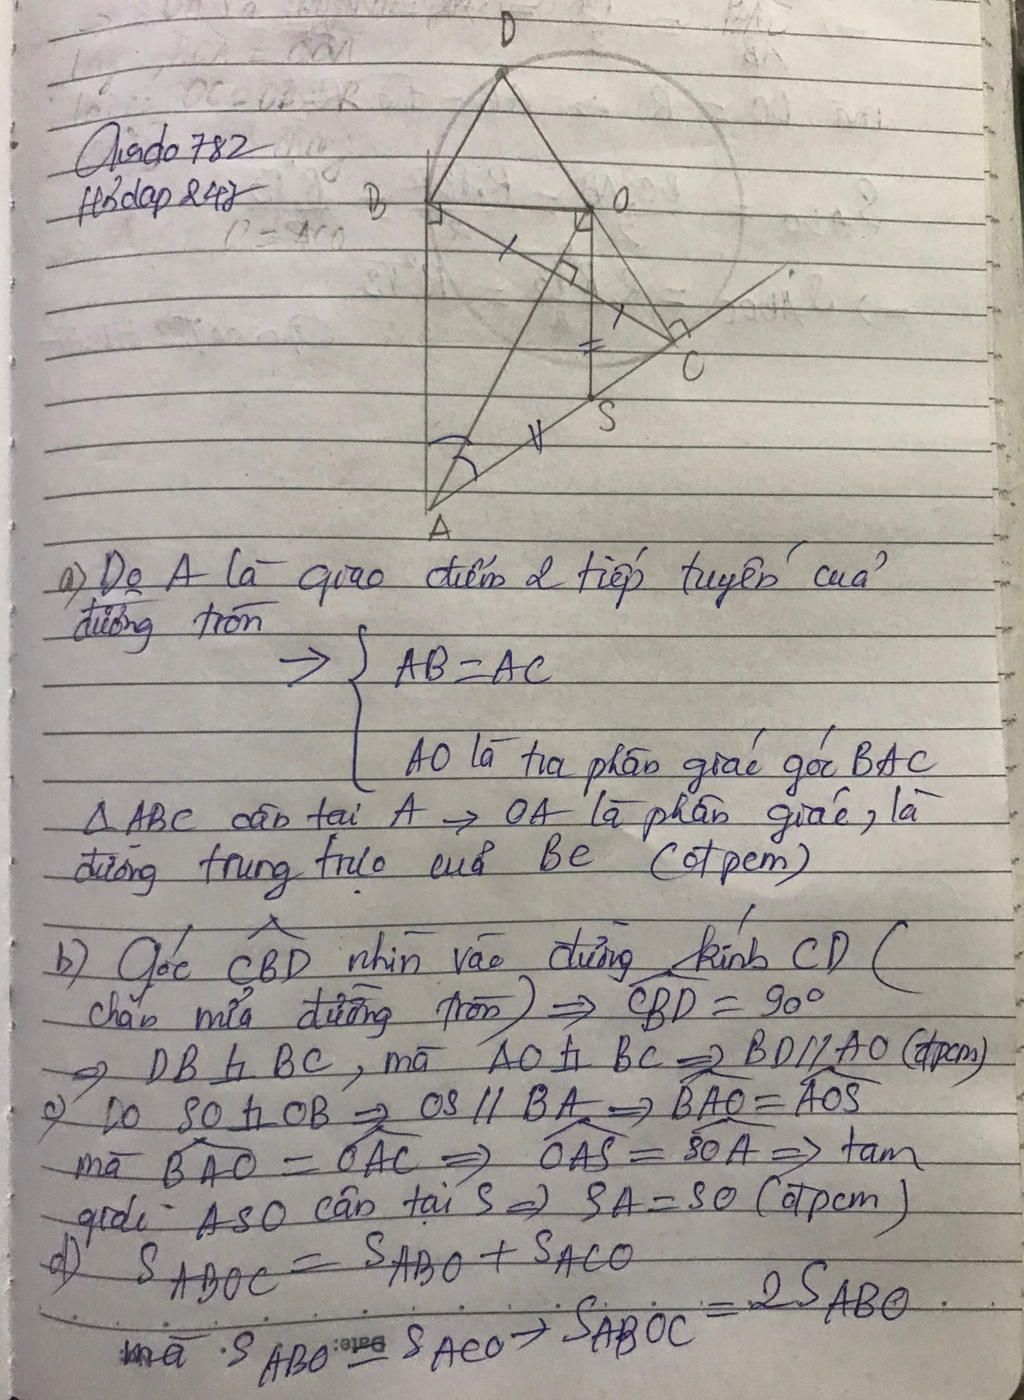 D
Hỏi đáp 247
B
O
C
S
A
a) Do A là giao điểm 2 tiếp tuyến của
đường tròn
→ { AB = AC
AO là tia phân giác góc BAC
Δ ABC cân tại A → OA là phân giác, là
đường trung trực của BC (đpcm)
b) Góc CBD nhìn vào đường kính CD (
chắn nửa đường tròn) ⇒ CBD = 90°
⇒ DB ⊥ BC, mà AO ⊥ BC ⇒ BD // AO (đpcm)
c) Do SO ⊥ OB ⇒ OS // BA ⇒ BAO = AOS
mà BAO = OAC ⇒ OAS = SOA ⇒ tam
giác ASO cân tại S ⇒ SA = SO (đpcm)
d) S ABOC = S ABO + S ACO
mà S ABO = S ACO → S ABOC = 2S ABO
Date: